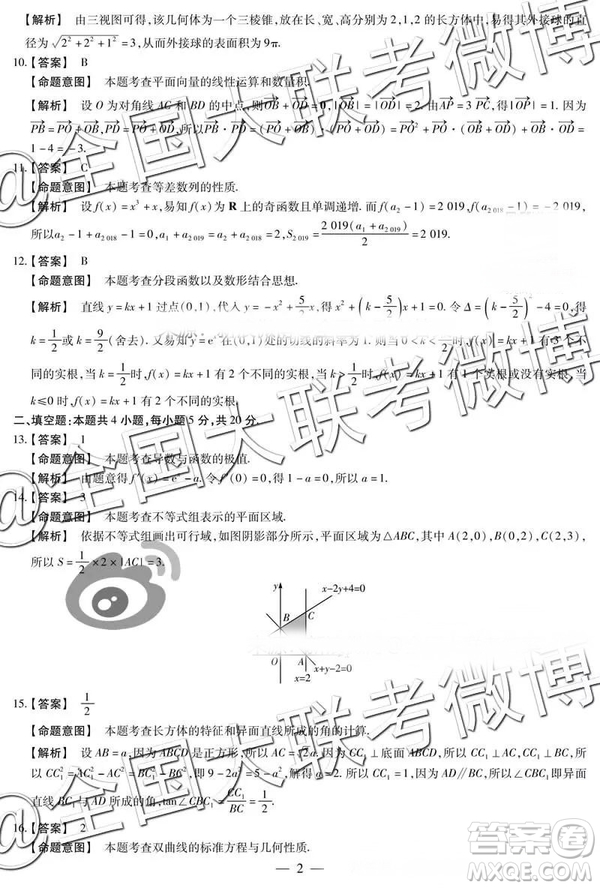 【解析】 由三视图可得,该几何体为一个三棱锥,放在长、宽、高分别为2,1,2的长方体中,易得其外接球的直
径为√2²+2²+1²=3,从而外接球的表面积为9π.
10.【答案】 B
【命题意图】 本题考查平面向量的线性运算和数量积.
【解析】 设O为对角线AC和BD的中点,则OB+OD=0,|OB|=|OD|=2.由AP=3PC,得|OP|=1.因为
PB=PO+OB,PD=PO+OD,所以PB·PD=(PO+OB)·(PO+OD)=PO²+PO·(OB+OD)+OB·OD=
1-4=-3.
11.【答案】 C
【命题意图】 本题考查等差数列的性质.
【解析】 设f(x)=x³+x,易知f(x)为R上的奇函数且单调递增.而f(a₂-1)=2 019,f(a₂₀₁₈-1)=-2 019,
所以a₂-1+a₂₀₁₈-1=0,a₂+a₂₀₁₈=2,S₂₀₁₉=2 019(a₁+a₂₀₁₉)/2=2 019.
12.【答案】 B
【命题意图】 本题考查分段函数以及数形结合思想.
【解析】 直线y=kx+1过点(0,1),代入y=-x²+5/2x,得x²+(k-5/2)x+1=0.令Δ=(k-5/2)²-4=0,得
k=1/2或k=9/2(舍去).又易知y=eˣ在(0,1)处的切线的斜率为1.则当0<k<1/2时,f(x)=kx+1有3个不
同的实根,当k=1/2时,f(x)=kx+1有2个不同的实根,当k>1/2时,f(x)=kx+1有1个实根或没有实根,当
k≤0时,f(x)=kx+1有2个不同的实根.
二、填空题:本题共4小题,每小题5分,共20分.
13.【答案】 1
【命题意图】 本题考查导数与函数的极值.
【解析】 由题意得f′(x)=eˣ-a.令f′(0)=0,得1-a=0,所以a=1.
14.【答案】 3
【命题意图】 本题考查不等式组表示的平面区域.
【解析】 依据不等式组画出可行域,如图阴影部分所示,平面区域为△ABC,其中A(2,0),B(0,2),C(2,3),
所以S=1/2×2×|AC|=3.
y
x-2y+4=0
B
C
O
A
x
x+y-2=0
15.【答案】 1/2
【命题意图】 本题考查长方体的特征和异面直线所成的角的计算.
【解析】 设AB=a,因为ABCD是正方形,所以AC=√2a.因为CC₁⊥底面ABCD,所以CC₁⊥AC,CC₁⊥BC,所
以CC₁²=AC₁²-AC²=BC₁²-BC²,即9-2a²=5-a²,解得a=2.所以CC₁=1,因为AD∥BC,所以∠C₁BC即异面
直线BC₁与AD所成的角,tan∠CBC₁=CC₁/BC=1/2.
16.【答案】 2
【命题意图】 本题考查双曲线的标准方程与几何性质.
— 2 —
@全国大联考微博
@全国大联考微博
@全国大联考微博
答案圈
MXQE.COM